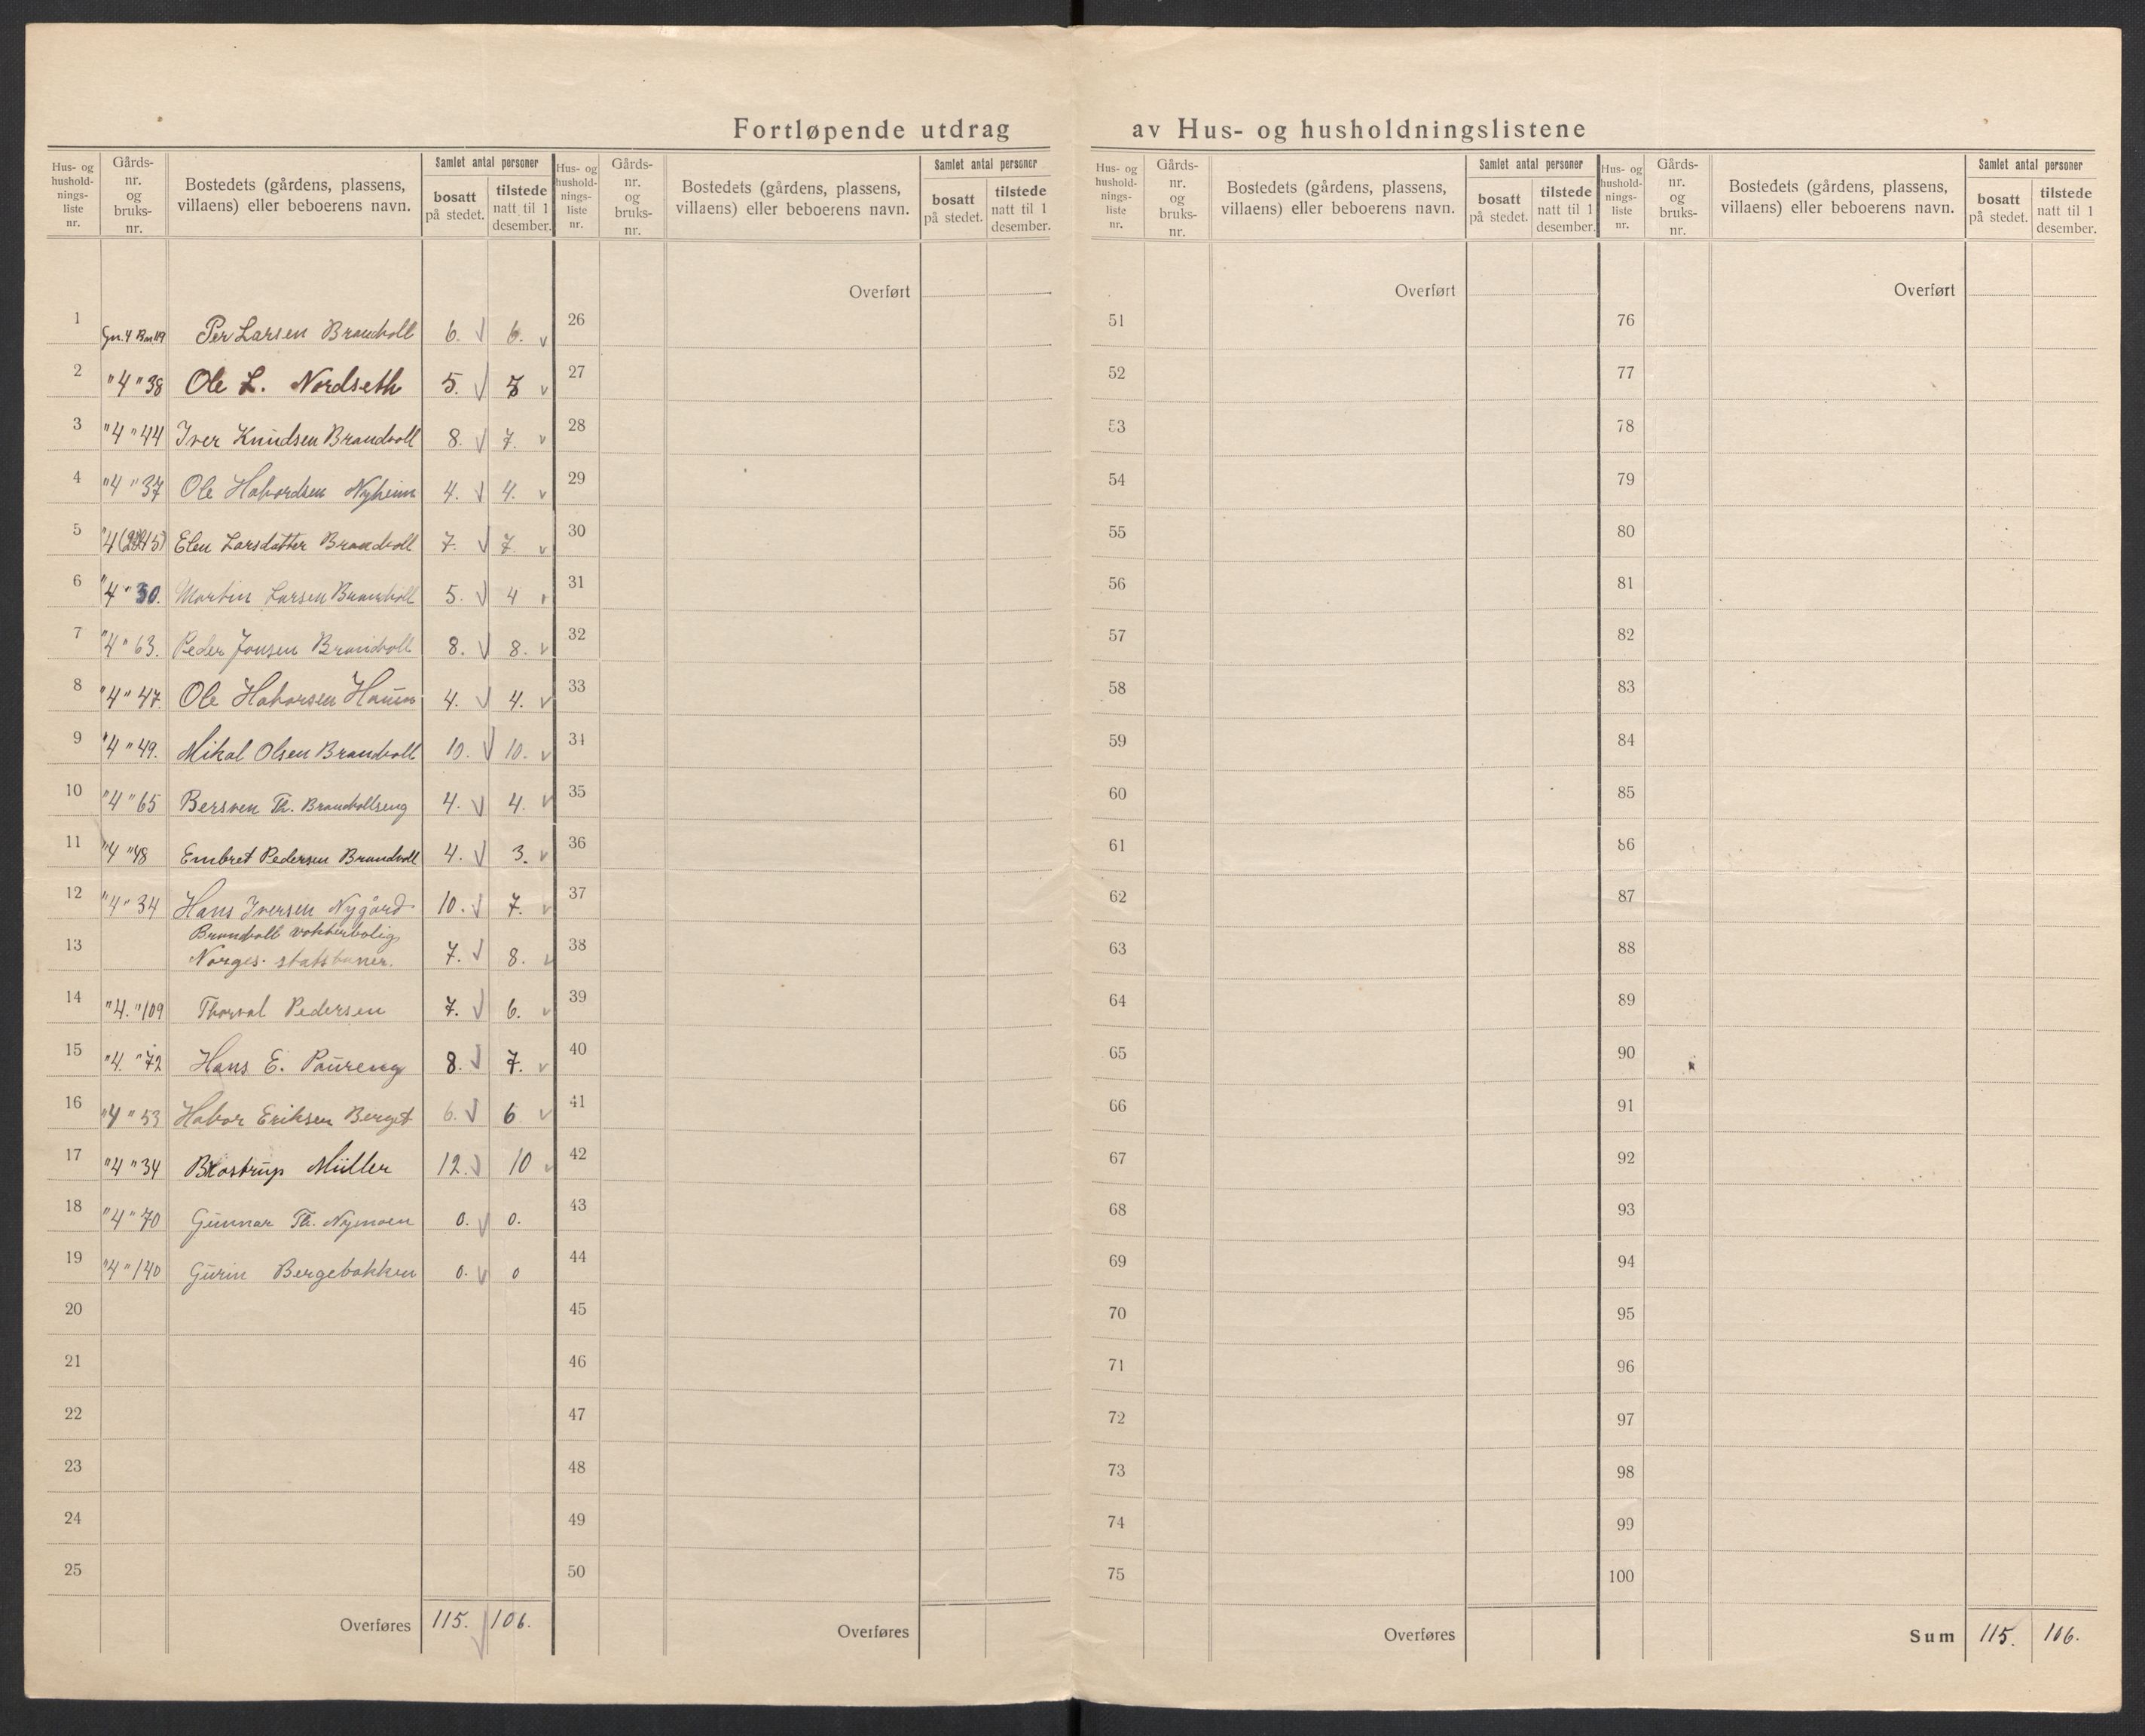 Fortløpende utdrag av Hus- og husholdningslistene
Hus- og husholdnings-liste nr. | Gårds-nr. og bruks-nr. | Bostedets (gårdens, plassens, villaens) eller beboerens navn. | Samlet antal personer | bosatt på stedet. | tilstede natt til 1 desember.
1 Gn. 4 Bn. 119 Per Larsen Brandvoll 6. 6.
2 " 4 " 38 Ole L. Nordseth 5.
3 " 4 " 44 Iver Knudsen Brandvoll 8. 7.
4 " 4 " 37 Ole Havordsen Nyheim 4. 4.
5 " 4 Elen Larsdatter Brandvoll 7. 7.
6 " 4 " 30. Martin Larsen Brandvoll 5. 4
7 " 4 " 63. Peder Jonsen Brandvoll 8. 8.
8 " 4 " 47. Ole Havorsen 4. 4.
9 " 4 " 49. Mikal Olsen Brandvoll 10. 10.
10 " 4 " 65 Bersven Th. Brandvollseng 4. 4.
11 " 4 " 48 Embret Pedersen Brandvoll 4. 3.
12 " 4 " 34 Hans Iversen Nygård 10. 7.
13 Brandvoll vokterbolig
Norges. statsbaner. 7. 8.
14 " 4. " 109 Thorval Pedersen 7. 6.
15 " 4. " 72 Hans E. Paureng 8. 7.
16 " 4 " 53 Havor Eriksen Berget 6. 6
17 " 4 " 34 Müller 12. 10
18 " 4 " 70 Gunnar Th. Nymoen 0. 0.
19 " 4 " 140 Gurin Bergebakken 0. 0
20
21
22
23
24
25
Overføres 115. 106.
Hus- og husholdnings-liste nr. | Gårds-nr. og bruks-nr. | Bostedets (gårdens, plassens, villaens) eller beboerens navn. | Samlet antal personer | bosatt på stedet. | tilstede natt til 1 desember.
Overført
26
27
28
29
30
31
32
33
34
35
36
37
38
39
40
41
42
43
44
45
46
47
48
49
50
Overføres
Hus- og husholdnings-liste nr. | Gårds-nr. og bruks-nr. | Bostedets (gårdens, plassens, villaens) eller beboerens navn. | Samlet antal personer | bosatt på stedet. | tilstede natt til 1 desember.
Overført
51
52
53
54
55
56
57
58
59
60
61
62
63
64
65
66
67
68
69
70
71
72
73
74
75
Overføres
Hus- og husholdnings-liste nr. | Gårds-nr. og bruks-nr. | Bostedets (gårdens, plassens, villaens) eller beboerens navn. | Samlet antal personer | bosatt på stedet. | tilstede natt til 1 desember.
Overført
76
77
78
79
80
81
82
83
84
85
86
87
88
89
90
91
92
93
94
95
96
97
98
99
100
Sum 115. 106.